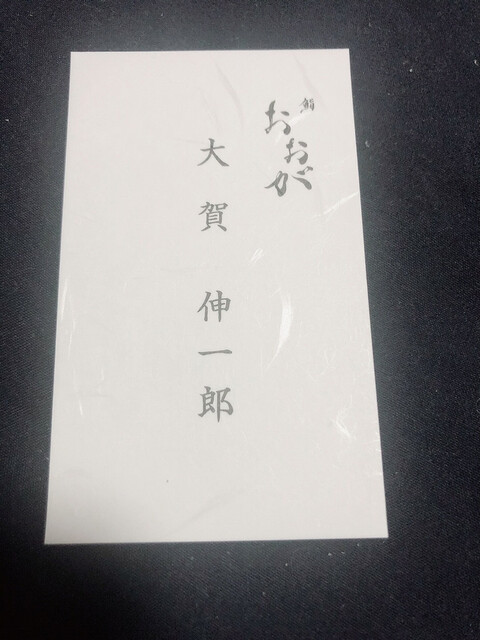 鮨 おおが
大賀 伸一郎